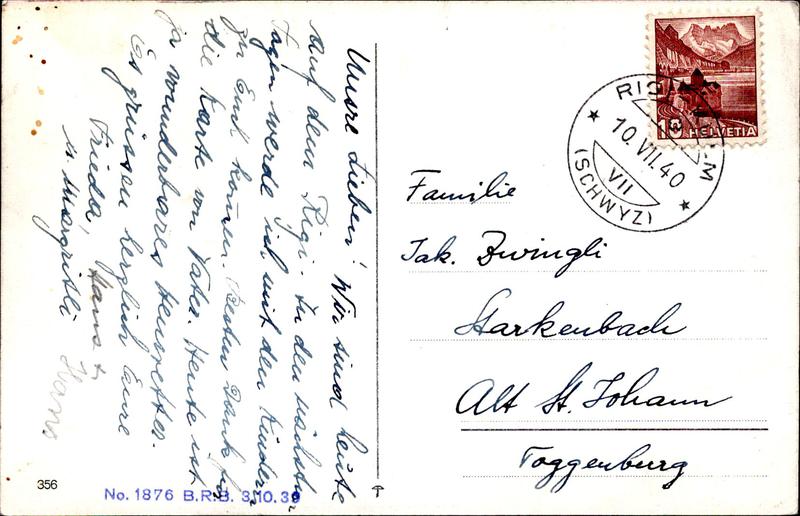 Unsre Lieben! Wir sind heute
auf dem Rigi. In den nächsten
Tagen werde ich mit den Kindern
zu Euch kommen. Besten Dank für
die Karte von Vater. Heute ist
ja wunderbares Heuwetter.
Es grüssen herzlich Eure
Frieda, Hans &
u. Margritli
Hans
Familie
Jak. Zwingli
Starkenbach
Alt St. Johann
Toggenburg
10
HELVETIA
RIGI
10.VII.40
VII
(SCHWYZ)
356
No. 1876 B.R.B. 3.10.39